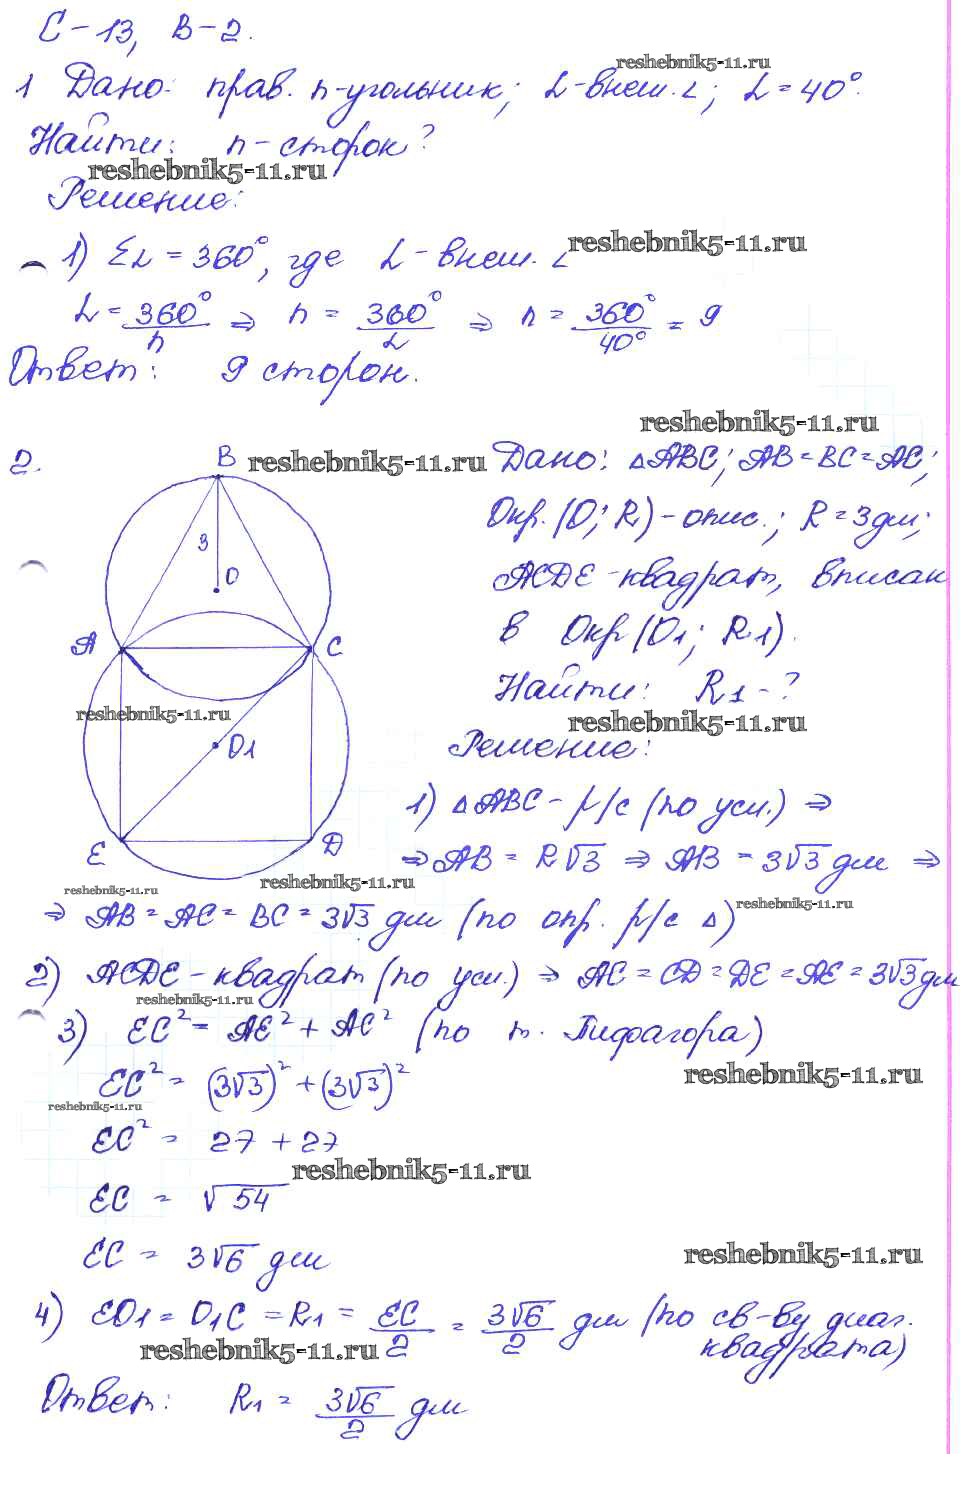 С-13, В-2.
reshebnik5-11.ru
1 Дано: прав. n-угольник; L-внеш. ∠; L = 40°.
Найти: n - сторон?
reshebnik5-11.ru
Решение:
reshebnik5-11.ru
1) ΣL = 360°, где L - внеш. ∠
L = 360°/n ⇒ n = 360°/L ⇒ n = 360°/40° = 9
Ответ: 9 сторон.
reshebnik5-11.ru
2.
B
reshebnik5-11.ru
3
O
A
C
reshebnik5-11.ru
O1
E
D
reshebnik5-11.ru
reshebnik5-11.ru
Дано: △ABC; AB = BC = AC;
Окр. (O; R) - опис.; R = 3дм;
ACDE - квадрат, вписан
в Окр (O1; R1).
Найти: R1 - ?
reshebnik5-11.ru
Решение:
1) △ABC - р/с (по усл.) ⇒
⇒ AB = R√3 ⇒ AB = 3√3 дм ⇒
reshebnik5-11.ru
⇒ AB = AC = BC = 3√3 дм (по опр. р/с △)
2) ACDE - квадрат (по усл.) ⇒ AC = CD = DE = AE = 3√3 дм
reshebnik5-11.ru
3) EC² = AE² + AC² (по т. Пифагора)
reshebnik5-11.ru
EC² = (3√3)² + (3√3)²
reshebnik5-11.ru
EC² = 27 + 27
reshebnik5-11.ru
EC = √54
EC = 3√6 дм
reshebnik5-11.ru
4) EO1 = O1C = R1 = EC/2 = 3√6/2 дм (по св-ву диаг.
квадрата)
reshebnik5-11.ru
Ответ: R1 = 3√6/2 дм